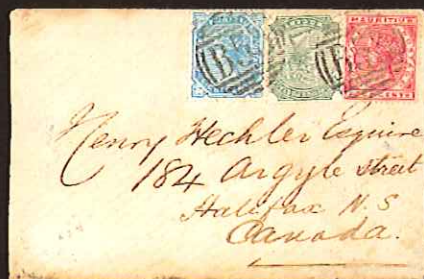 MAURITIUS
B53
B53
Henry Hechler Esquire
184 Argyle Street
Halifax N.S
Canada.